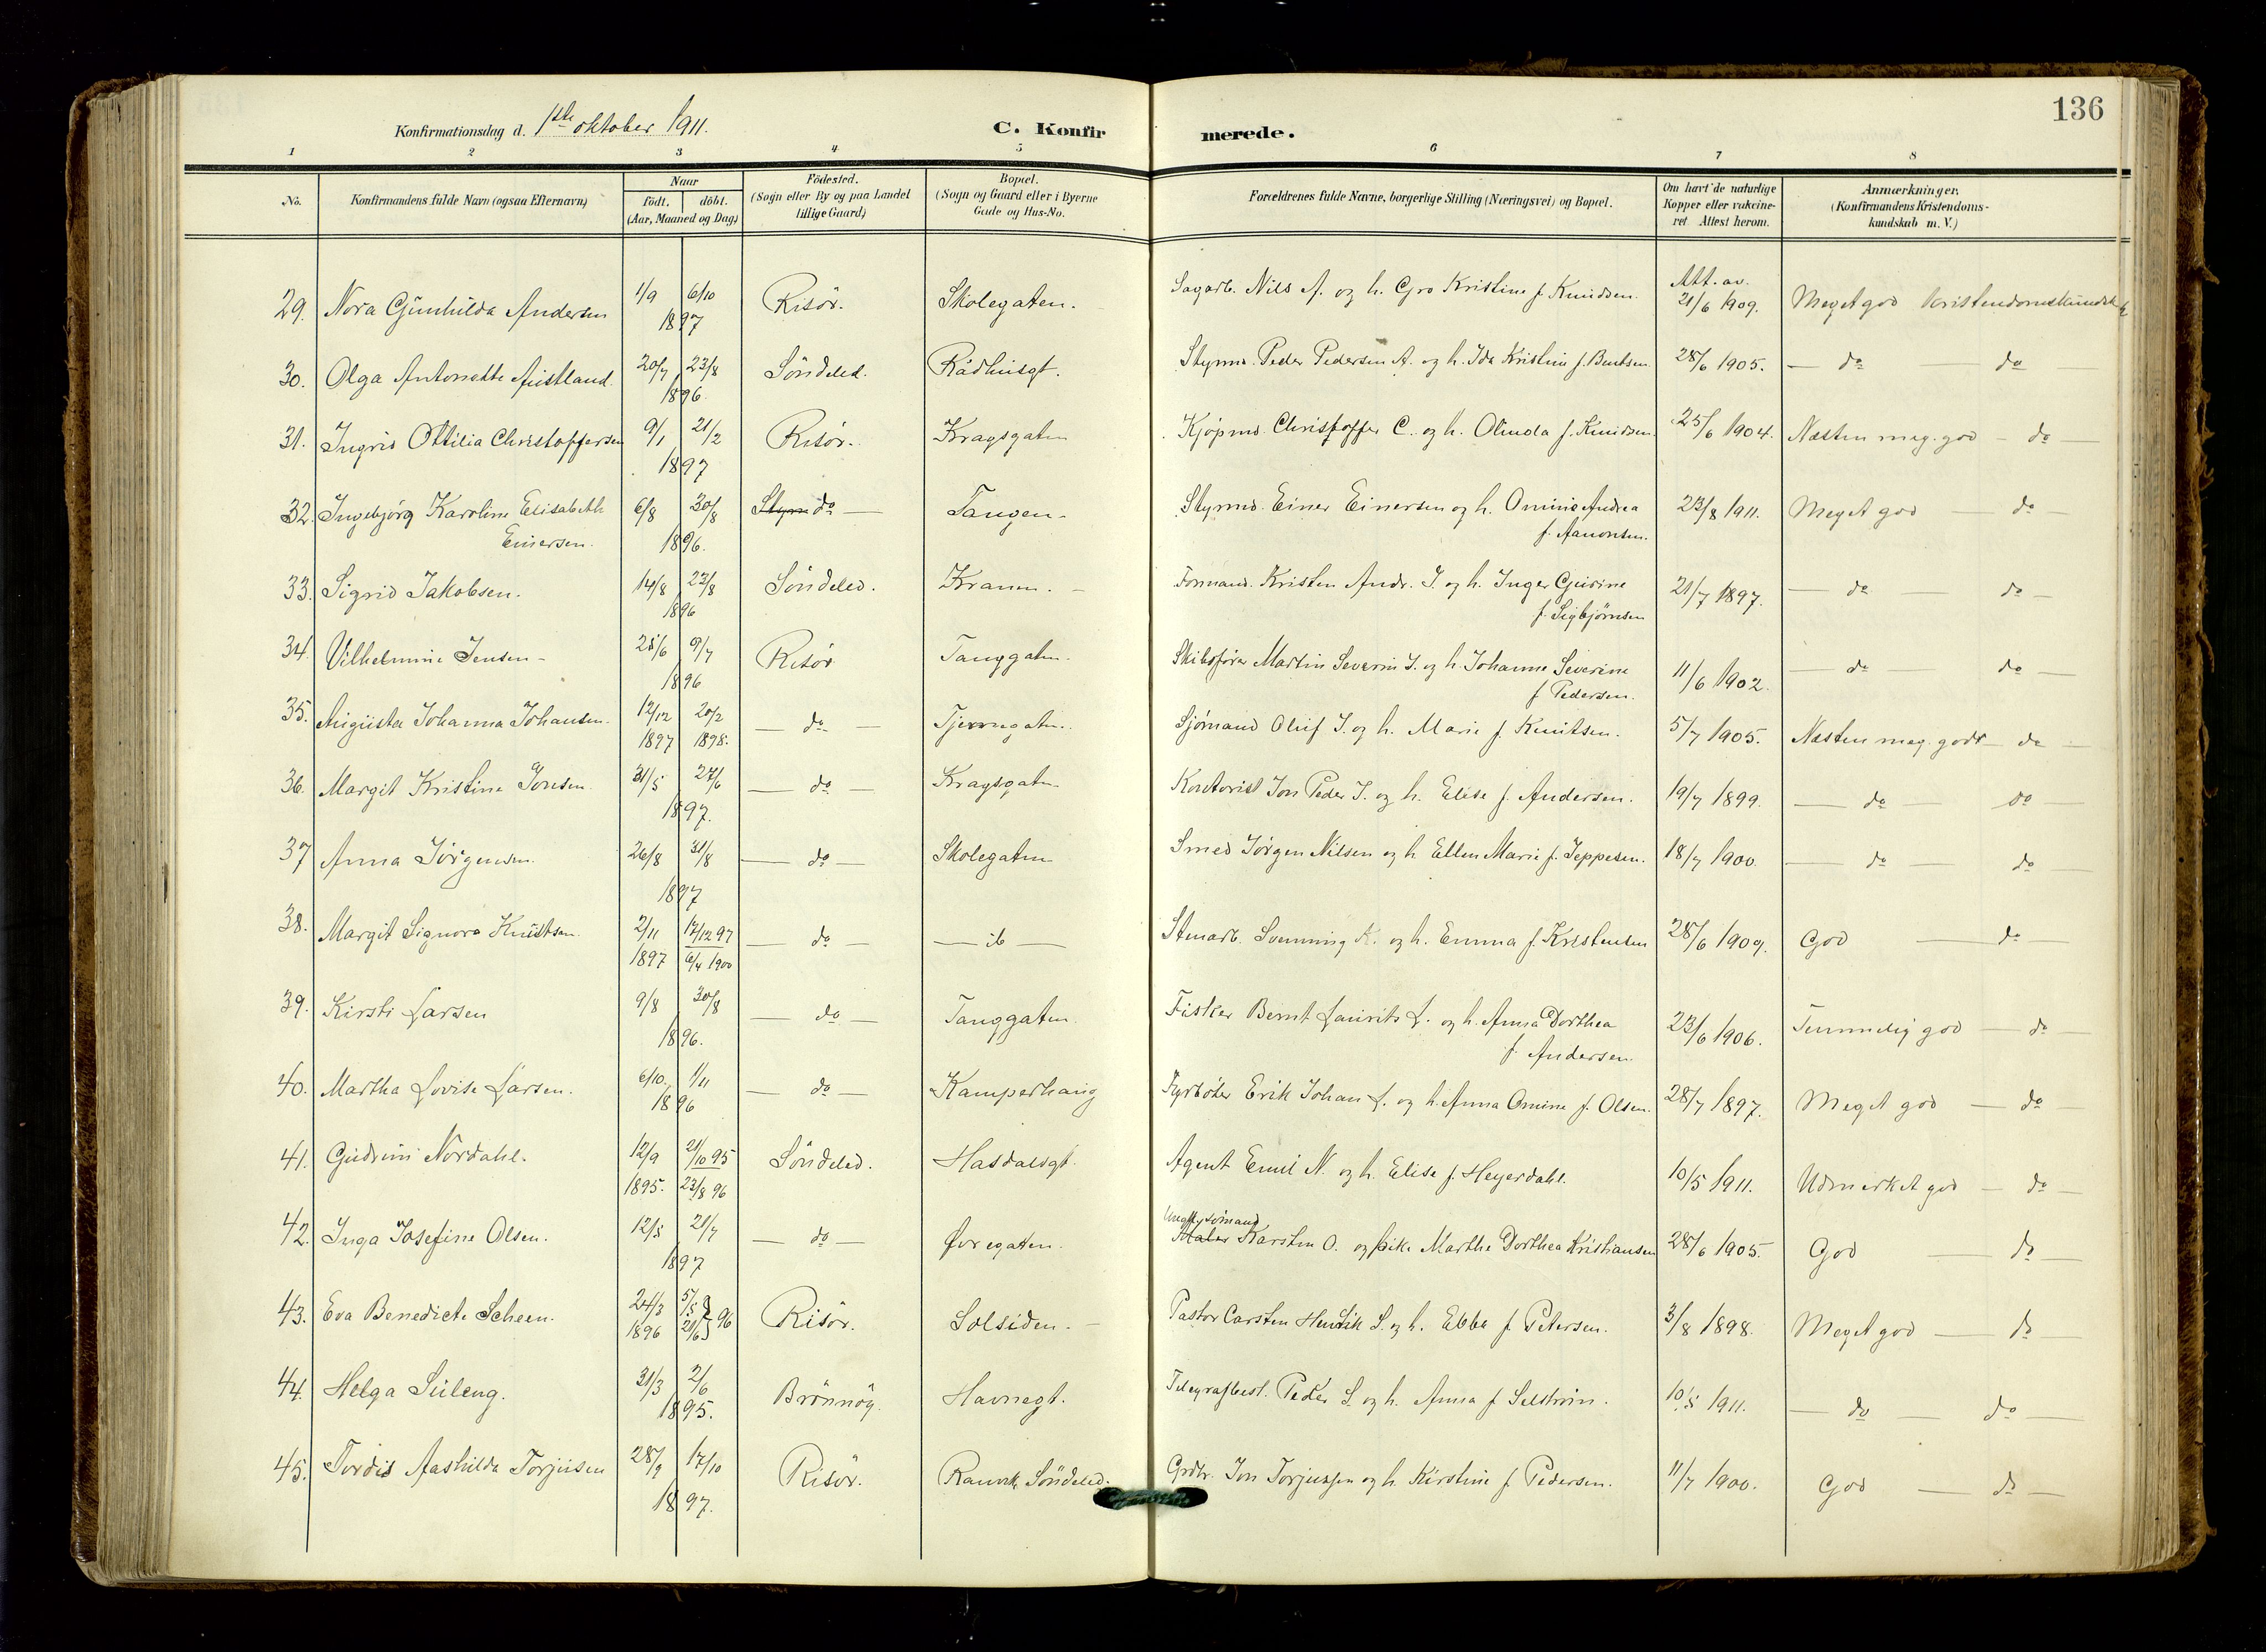 136
Konfirmationsdag d. 1ste oktober 1911.
C. Konfirmerede.
1 2 3 4 5 6 7 8
No. Konfirmandens fulde Navn (ogsaa Efternavn) Naar födt. döbt. (Aar, Maaned og Dag) Födested. (Sogn eller By og paa Landet tillige Gaard) Bopæl. (Sogn og Gaard eller i Byerne Gade og Hus-No. Forældrenes fulde Navne, borgerlige Stilling (Næringsvei) og Bopæl. Om havt de naturlige Kopper eller vakcineret Attest herom. Anmærkninger. (Konfirmandens Kristendomskundskab m. V.)
29. Nora Gunhilda Andersen 1/9 6/10 1897 Risör. Skolegaten. Sagarb. Nils A. og h. Gro Kristine f. Knudsen. Att. av. 21/6 1909. Meget god kristendomskundskab
30. Olga Antonette Austland. 20/7 23/8 1896. Söndeled. Rådhusgt. Styrmd. Peder Pedersen A. og h. Ida Kristine f. Berntsen 28/6 1905. — do do —
31. Ingrid Ottilia Christoffersen 9/1 21/2 1897 Risör. Kragsgaten Kjöpmd. Christoffer C. og h. Olinda f. Knudsen. 25/6 1904. Næsten meg. god - do —
32. Ingebjörg Karoline Elisabeth Einersen. 6/8 30/8 1896. Styrm do — Tangen - Styrmd. Einer Einersen og h. Omine Andrea f. Aanonsen. 23/8 1911. Meget god — do —
33. Sigrid Jakobsen. 14/8 23/8 1896 Söndeled. Kranen. - Formand. Kristen Andr. J. og h. Inger Gurine f. Sigbjørnsen 21/7 1897. — do — do —
34. Vilhelmine Jensen - 28/6 9/7 1896 Risör Tanggaten. Skibsfører Martin Severin J. og h. Johanne Severine f. Pedersen. 11/6 1902. — do do —
35. Augusta Johanna Johansen. 12/12 1897 20/2 1898. — do — Tjennegaten. Sjömand Oluf J. og h. Marie f. Knutsen. 5/7 1905. Næsten meg. godt — do —
36. Margit Kristine Jonsen 31/5 27/6 1897. — do — Kragsgaten Kontorist Jon Peder J. og h. Elise f. Andersen. 19/7 1899. — do — do
37 Anna Jörgensen. 26/8 31/8 1897 — do — Skolegaten Smed Jörgen Nilsen og h Ellen Marie f. Jeppesen. 18/7 1900. — do — do —
38. Margit Signora Knutsen. 2/11 1897 17/12 97 6/4 1900 — do — — ib — Stenarb. Svenning K. og h. Emma f. Kristensen 28/6 1909. God — do —
39. Kirsti Larsen 9/8 30/8 1896. — do — Tanggaten. Fisker Bernt Laurits L. og h. Anna Dorthea f. Andersen. 23/6 1906. Temmelig god — do —
40. Martha Lovise Larsen. 6/10. 1/11 1896 — do — Kamperhaug Fyrböter Erik Johan L. og h. Anna Omine f. Olsen. 28/7 1897. Meget god — do —
41. Gudrun Nordahl. 12/9 1895. 21/10 95 23/8 96 Söndeled. Hasdalsgt. Agent Emil N. og h. Elise f. Heyerdahl. 10/5 1911. Udmerket god — do —
42. Inga Josefine Olsen. 12/5 21/7 1897 — do — Øvregaten. Ungk. sömand Maler Karsten O. og pike Marthe Dorthea Kristiansen 28/6 1905. God — do —
43. Eva Benedicte Scheen. 24/3 1896 5/5 21/6 } 96 Risör. Solsiden. - Pastor Carsten Henrik S. og h. Ebba f. Petersen. 3/8 1898. Meget god — do —
44. Helga Süleng. 31/3 2/6 1895. Brönnöy. Havnegt. Telegrafbest. Peder S. og h. Anna f. Selström. 10/5 1911. — do — do —
45. Tordis Aashilda Torjusen 28/9 17/10 1897. Risör. Ranvik, Söndeled. Grdbr. Jon Torjussen og h. Kirstine f. Pedersen. 11/7 1900. God — do —